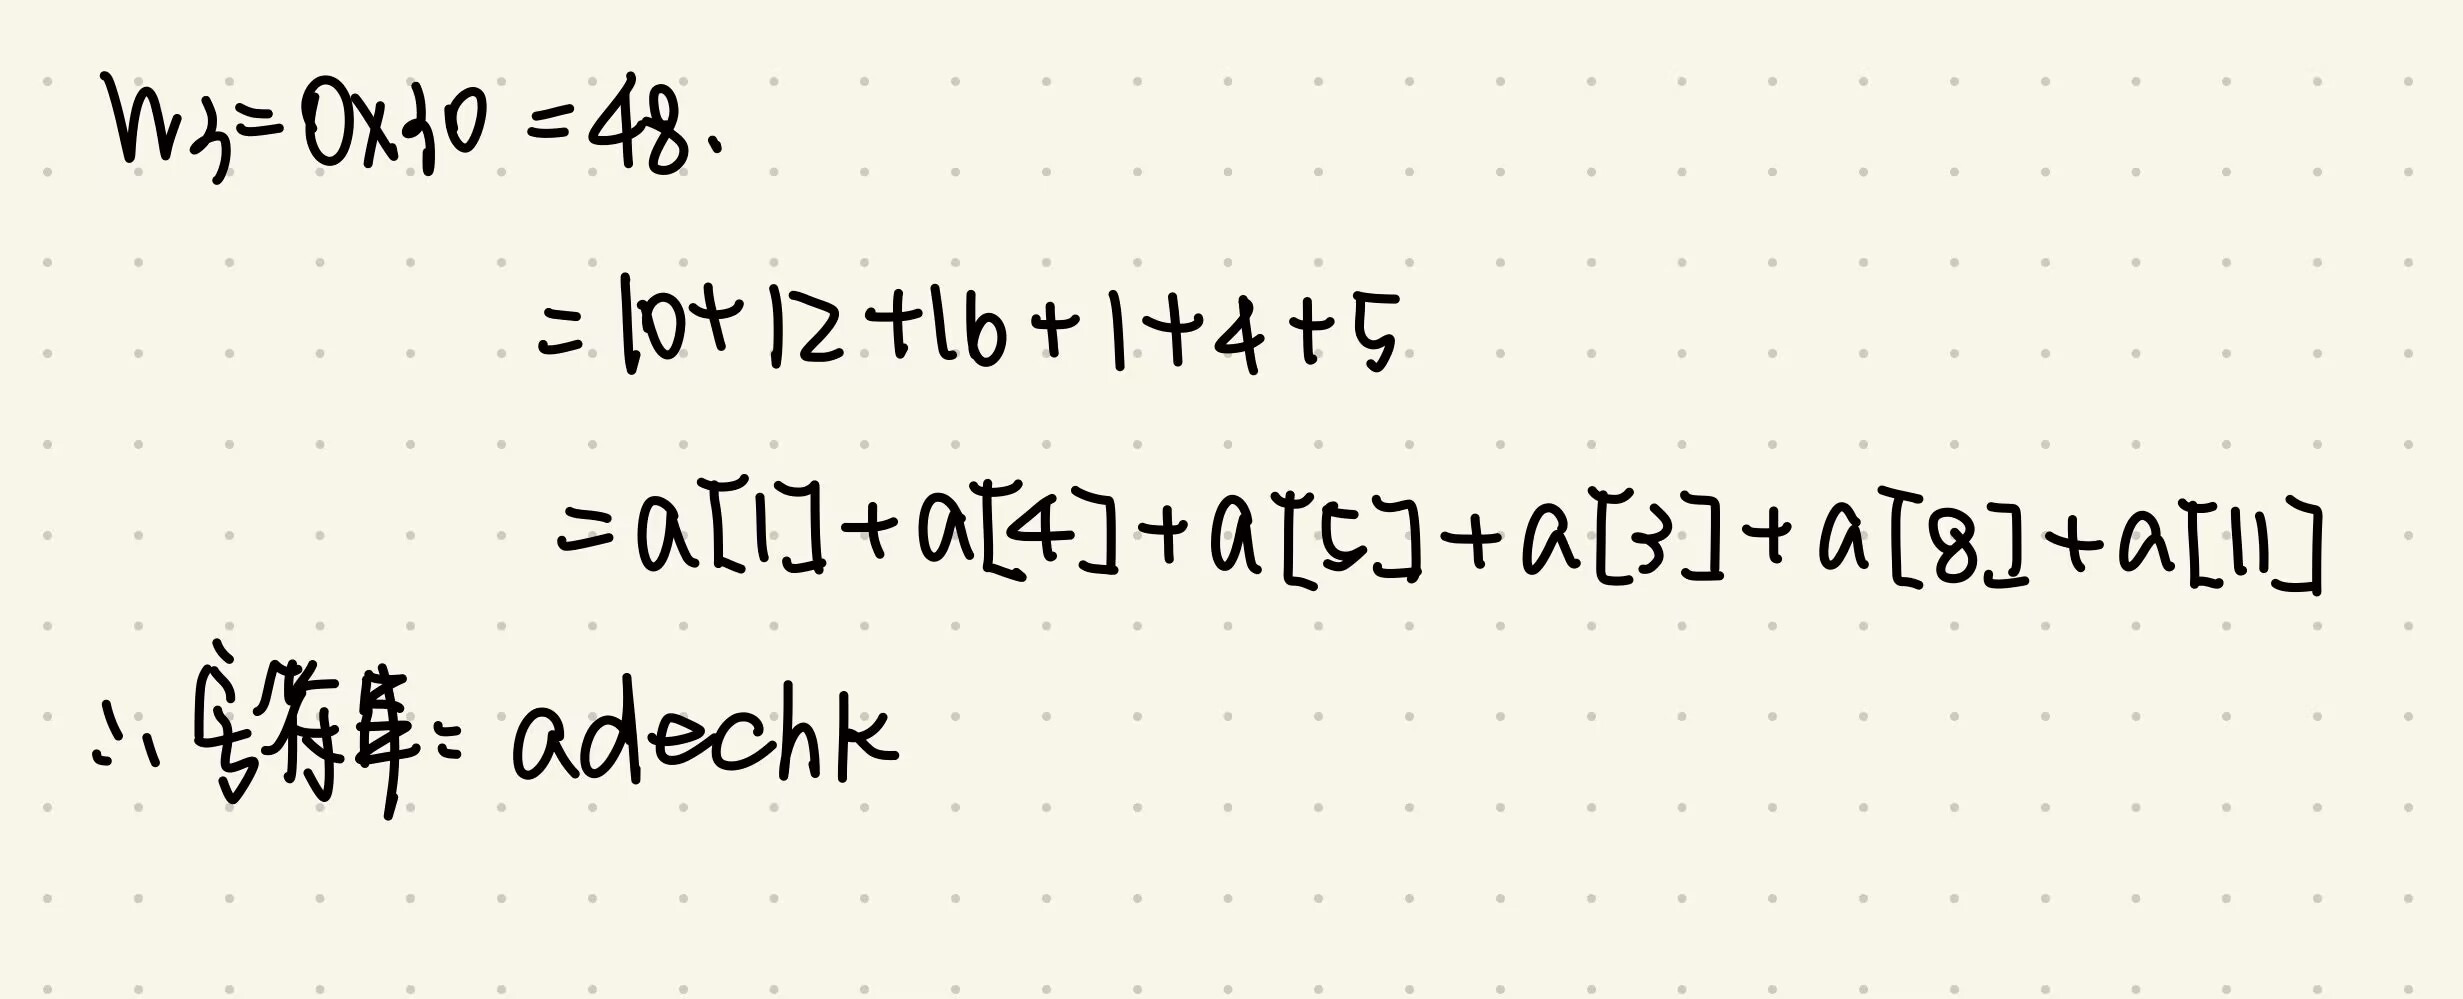 W3=0x30=48.
=10+12+16+1+4+5
=a[1]+a[4]+a[5]+a[3]+a[8]+a[11]
∴字符串= adechk